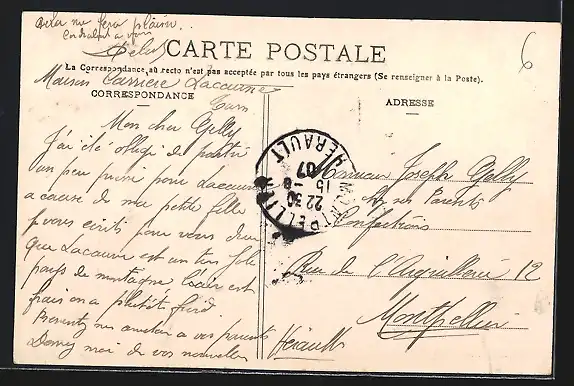 Cela me fera plaisir
Cordialement a vous
CARTE POSTALE
La Correspondance au recto n'est pas acceptée par tous les pays étrangers (Se renseigner à la Poste).
Maison Carrière Lacaune
Tarn
CORRESPONDANCE
ADRESSE
Mon cher Gelly
J'ai été obligé de partir
un peu pour Lacaune
a cause de ma petite fille
je vous écris pour vous dire
que Lacaune est un très joli
pays de montagne, l'air est
frais on a plutôt froid
Presentez mes amitiés a vos parents
Donnez moi de vos nouvelles
Monsieur Joseph Gelly
chez ses Parents
Confections
Rue de l'Aiguillerie 12
Montpellier
Hérault
MONTPELLIER
HERAULT
22 30
16 - 8
07
6